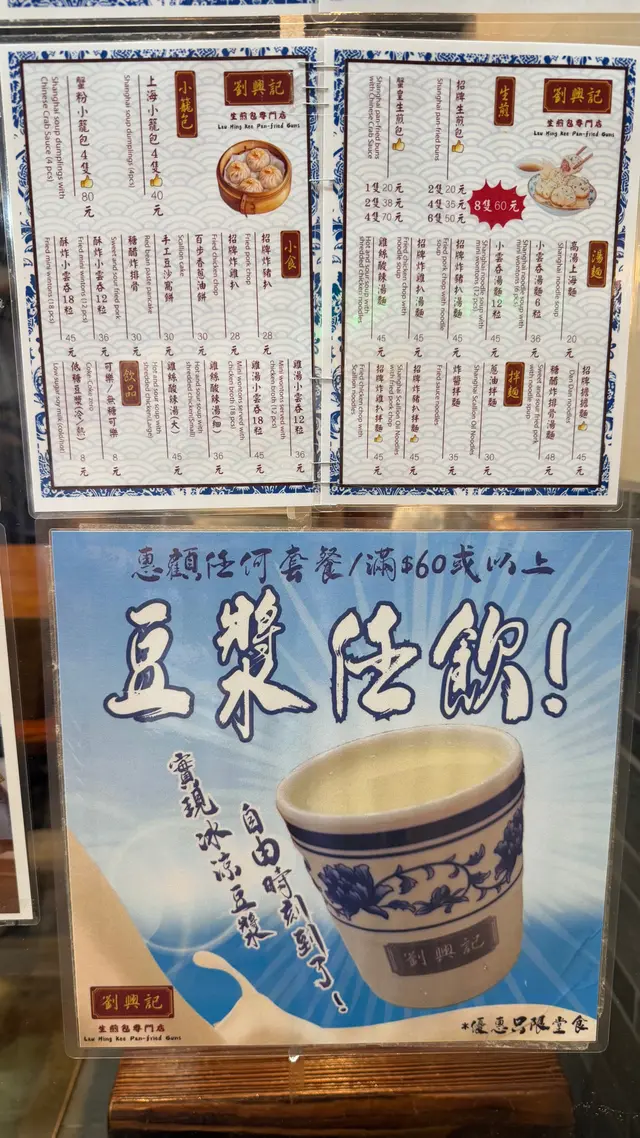 劉興記
生煎包專門店
Lau Hing Kee Pan-fried Buns
小籠包
上海小籠包 4隻 40元
Shanghai soup dumplings (4pcs)
蟹粉小籠包 4隻 80元
Shanghai soup dumplings with Chinese Crab Sauce (4 pcs)
小食
招牌炸豬扒 28元
Fried pork chop
招牌炸雞扒 28元
Fried chicken chop
百步香蔥油餅 30元
Scallion cake
手工豆沙窩餅 30元
Red bean paste pancake
糖醋炸排骨 45元
Sweet and sour fried pork
酥炸小雲吞12粒 36元
Fried mini wontons (12 pcs)
酥炸小雲吞18粒 45元
Fried mini wontons (18 pcs)
雞湯小雲吞12粒 36元
Mini wontons served with chicken broth (12 pcs)
雞湯小雲吞18粒 45元
Mini wontons served with chicken broth (18 pcs)
雞絲酸辣湯(細) 36元
Hot and sour soup with shredded chicken(Small)
雞絲酸辣湯(大) 45元
Hot and sour soup with shredded chicken(Large)
飲品
可樂/無糖可樂 8元
Coke/Coke zero
低糖豆漿(冷/熱) 8元
Low sugar soy milk (cold/hot)
劉興記
生煎包專門店
Lau Hing Kee Pan-fried Buns
生煎
招牌生煎包
Shanghai pan-fried buns
2隻 20元
4隻 35元
6隻 50元
8隻 60元
蟹皇生煎包
Shanghai pan-fried buns with Chinese Crab Sauce
1隻 20元
2隻 38元
4隻 70元
湯麵
高湯上海麵 20元
Shanghai noodle soup
小雲吞湯麵6粒 36元
Shanghai noodle soup with mini wontons
小雲吞湯麵12粒 45元
Shanghai noodle soup with mini wontons
招牌炸豬扒湯麵 45元
Fried pork chop with noodle soup
招牌炸雞扒湯麵 45元
Fried chicken chop with noodle soup
雞絲酸辣湯麵 45元
Hot and sour soup with shredded chicken noodles
招牌擔擔麵 45元
Dan Dan noodles
糖醋炸排骨湯麵 48元
Sweet and sour fried pork with noodle soup
拌麵
蔥油拌麵 30元
Shanghai Scallion Oil Noodles
炸醬拌麵 35元
Fried sauce noodles
招牌炸豬扒拌麵 45元
Shanghai Scallion Oil Noodles with fried pork chop
招牌炸雞扒拌麵 45元
Fried chicken chop with Scallion noodles
惠顧任何套餐/滿$60或以上
豆漿任飲!
實現冰涼豆漿
自由時刻到了!
劉興記
劉興記
生煎包專門店
Lau Hing Kee Pan-fried Buns
*優惠只限堂食